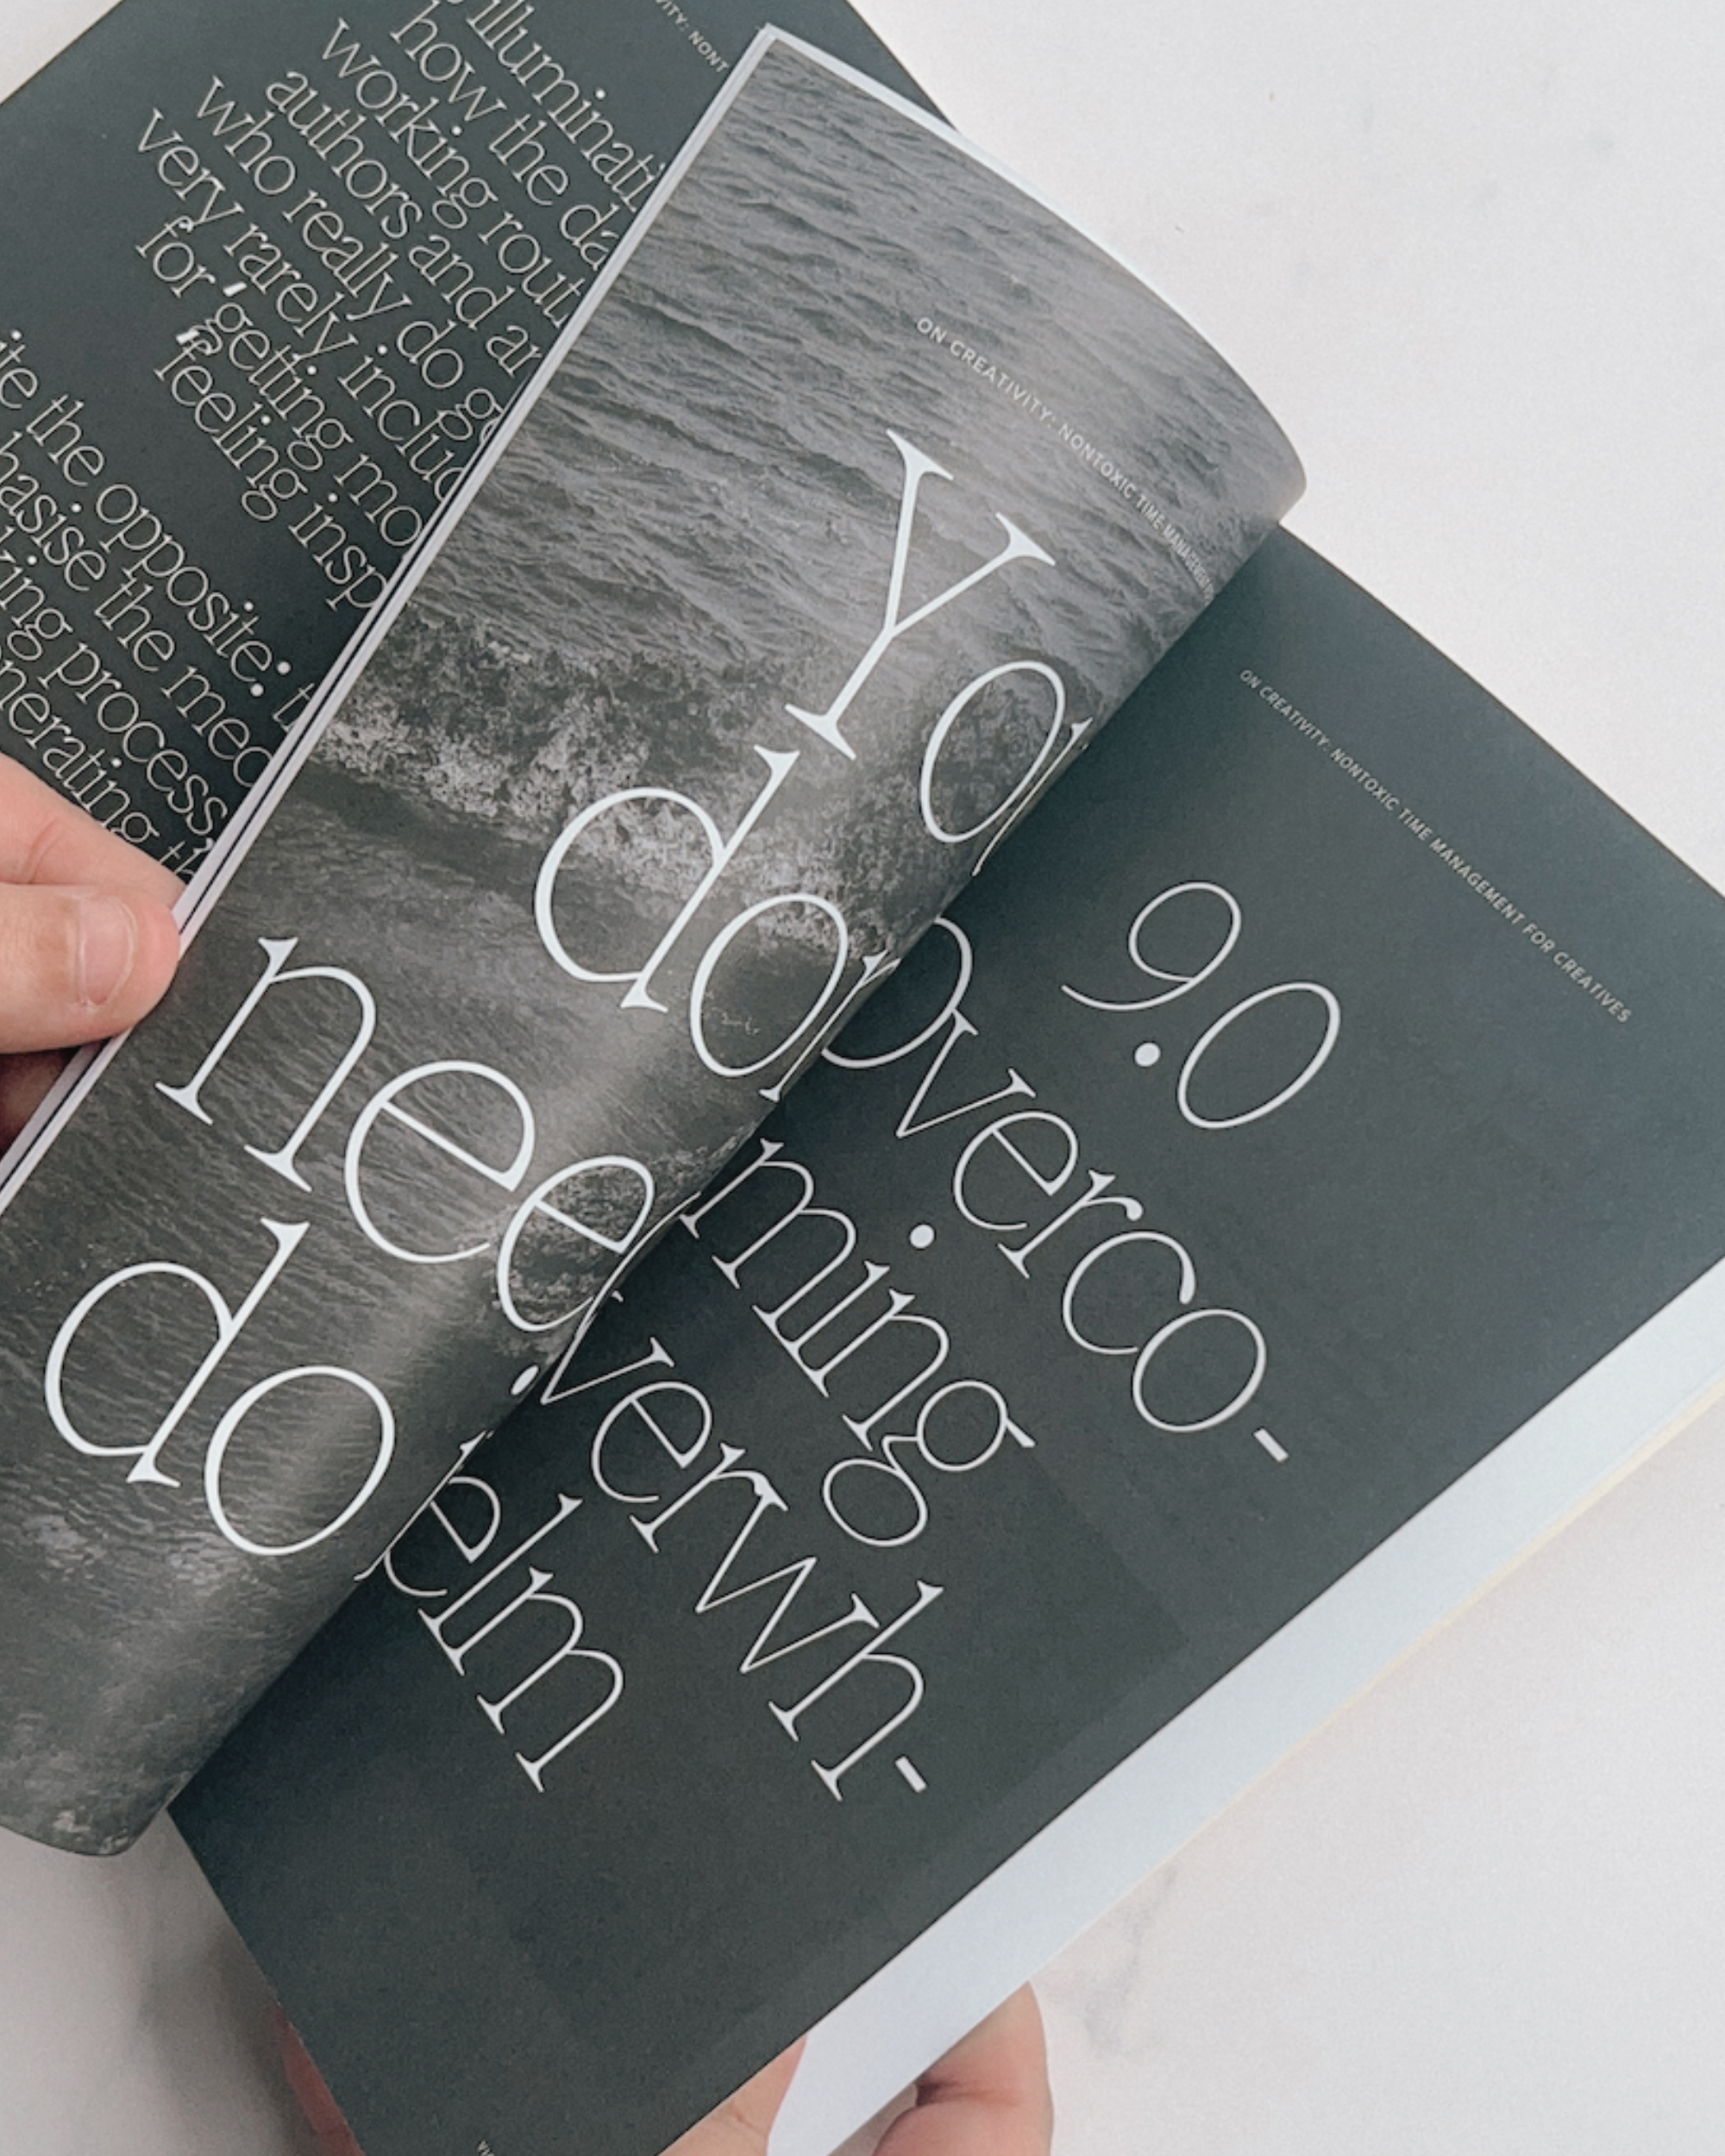 illuminati
how the da
working routi
authors and ar
who really do ge
very rarely includ
for 'getting mo
'feeling insp
ite the opposite: t
hasise the med
king process
nerating th
ON CREATIVITY: NONTOXIC TIME MANAGEMENT
You
don
need
do
ON CREATIVITY: NONTOXIC TIME MANAGEMENT FOR CREATIVES
9.0
overco-
ming
verwh-
elm